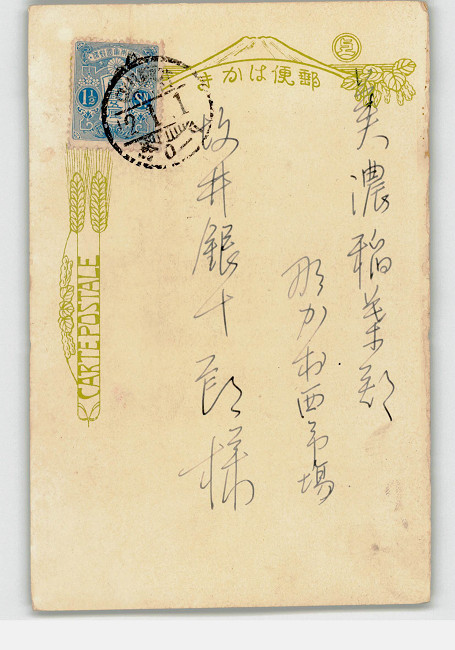 きかは便郵
美濃稲葉郡
那加村西市場
坂井銀十郎様
CARTE POSTALE
1½
2.1.1